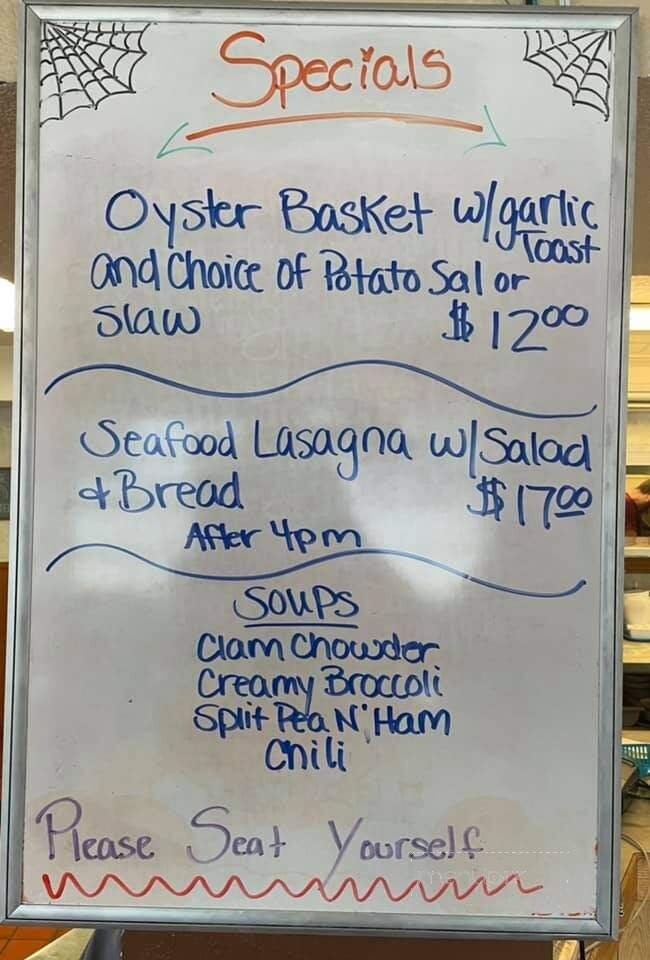 Specials
Oyster Basket w/garlic
Toast
and Choice of Potato Sal or
Slaw $12.00
Seafood Lasagna w/Salad
& Bread $17.00
After 4pm
Soups
Clam Chowder
Creamy Broccoli
Split Pea N' Ham
Chili
Please Seat Yourself